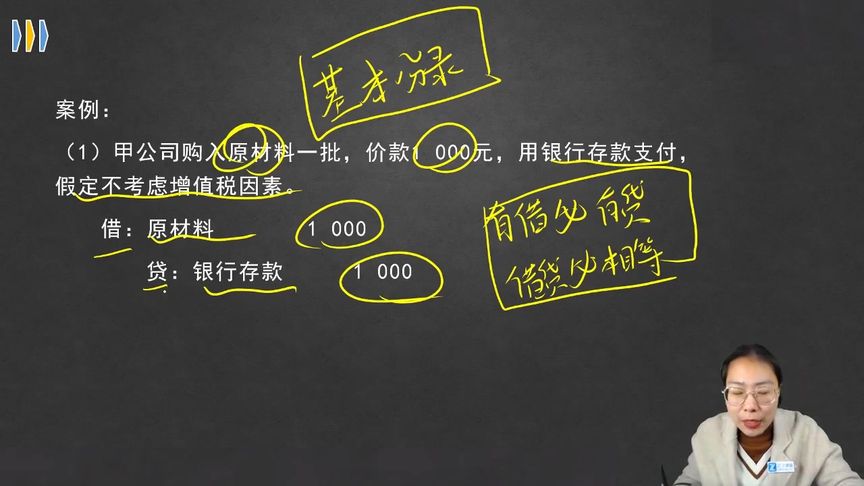 基本分录
案例：
（1）甲公司购入原材料一批，价款1 000元，用银行存款支付，
假定不考虑增值税因素。
借：原材料 1 000
贷：银行存款 1 000
有借必有贷
借贷必相等